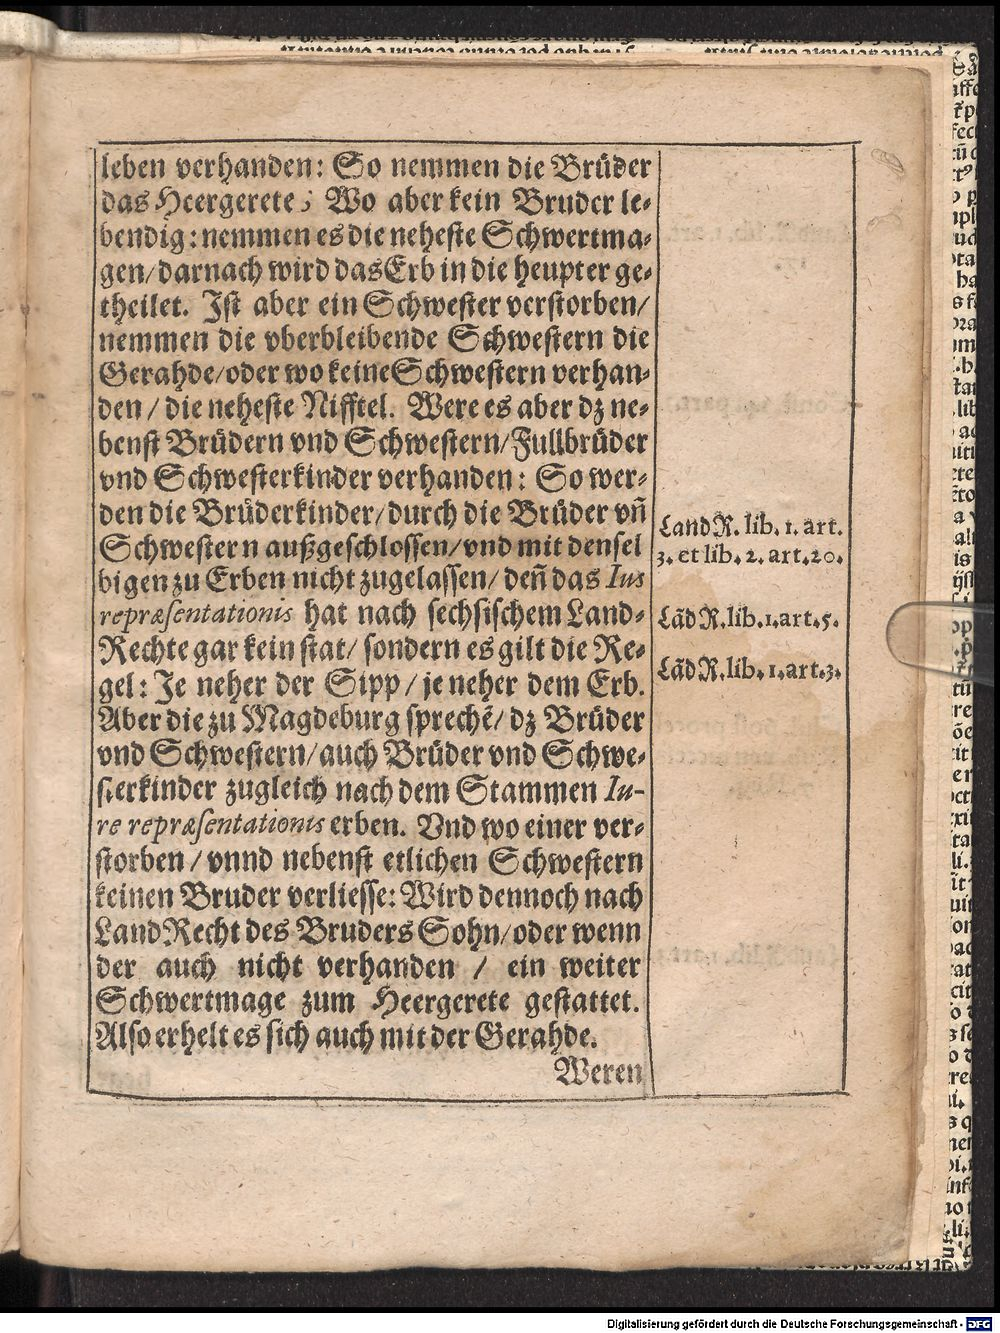 leben verhanden: So nemmen die Brüder
das Heergerete; Wo aber kein Bruder le-
bendig: nemmen es die neheste Schwertma-
gen/ darnach wird das Erb in die heupter ge-
theilet. Ist aber ein Schwester verstorben/
nemmen die vberbleibende Schwestern die
Gerahde/ oder wo keine Schwestern verhan-
den / die neheste Nifftel. Were es aber dz ne-
benst Brüdern vnd Schwestern/ Fullbrüder
vnd Schwesterkinder verhanden: So wer-
den die Brüderkinder/ durch die Brüder vñ
Schwestern außgeschlossen/ vnd mit densel
bigen zu Erben nicht zugelassen/ deñ das Ius
repræsentationis hat nach sechsischem Land-
Rechte gar kein stat/ sondern es gilt die Re-
gel: Je neher der Sipp / je neher dem Erb.
Aber die zu Magdeburg sprechẽ/ dz Brüder
vnd Schwestern/ auch Brüder vnd Schwe-
sterkinder zugleich nach dem Stammen Iu-
re repræsentationis erben. Vnd wo einer ver-
storben / vnnd nebenst etlichen Schwestern
keinen Bruder verliesse: Wird dennoch nach
LandRecht des Bruders Sohn/ oder wenn
der auch nicht verhanden / ein weiter
Schwertmage zum Heergerete gestattet.
Also erhelt es sich auch mit der Gerahde.
Weren
Land R. lib. 1. art.
3. et lib. 2. art. 20.
Lãd R. lib. 1. art. 5.
Lãd R. lib. 1. art. 3.
Digitalisierung gefördert durch die Deutsche Forschungsgemeinschaft - DFG